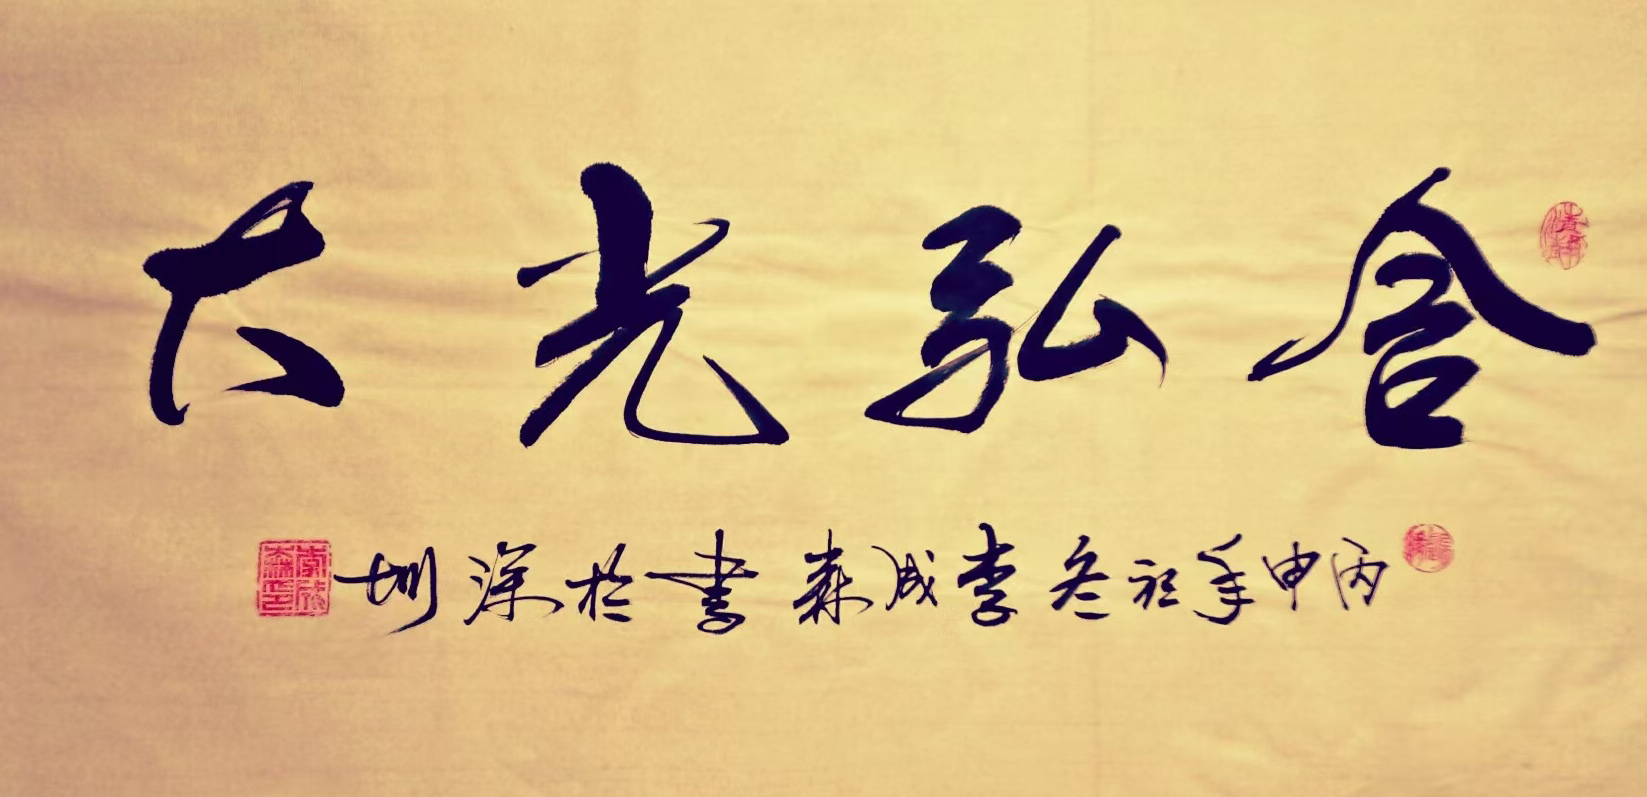 含弘光大
丙申年初冬李成森書於深圳